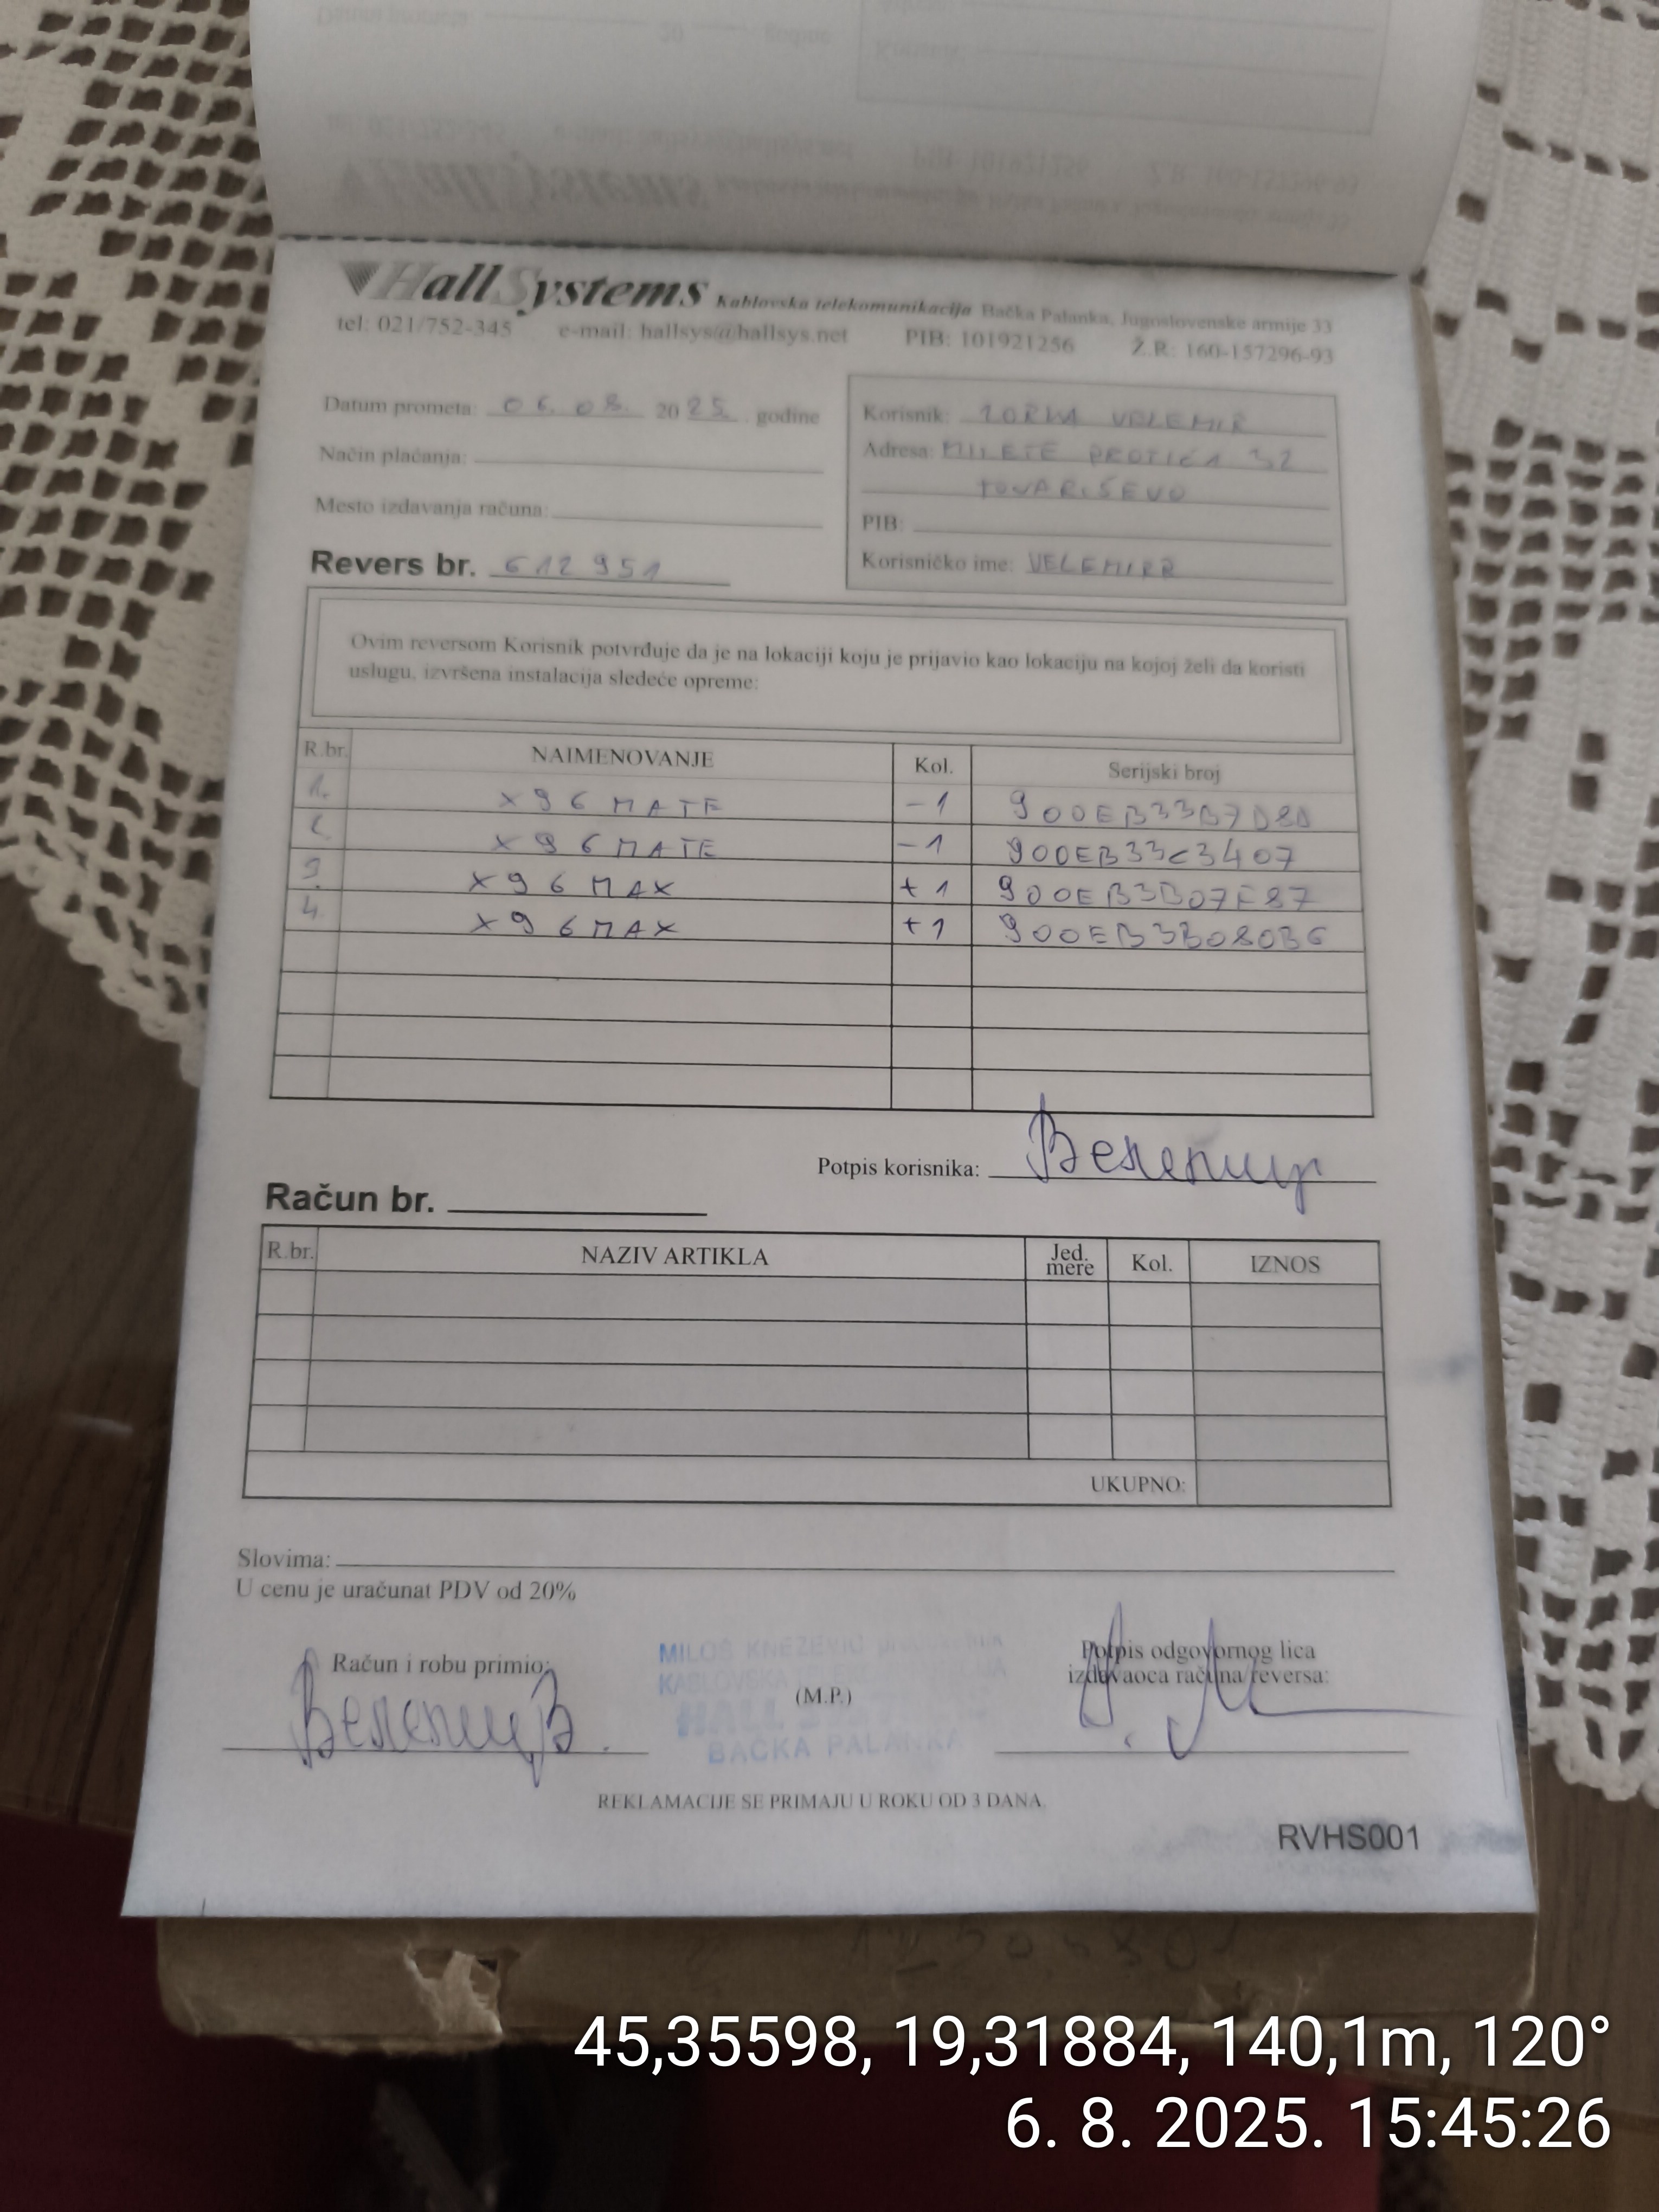 HallSystems Kablovska telekomunikacija Bačka Palanka, Jugoslovenske armije 33
tel: 021/752-345 e-mail: hallsys@hallsys.net PIB: 101921256 Ž.R: 160-157296-93
Datum prometa: 06. 08. 2025. godine
Način plaćanja:
Mesto izdavanja računa:
Revers br. 612951
Korisnik: ZORKA VELEMIR
Adresa: MILETE PROTIĆA 32
TOVARIŠEVO
PIB:
Korisničko ime: VELEMIRR
Ovim reversom Korisnik potvrđuje da je na lokaciji koju je prijavio kao lokaciju na kojoj želi da koristi
uslugu, izvršena instalacija sledeće opreme:
R.br. NAIMENOVANJE Kol. Serijski broj
1. X96 MATE -1 900EB33B7D8D
2. X96 MATE -1 900EB33C3407
3. X96 MAX +1 900EB3B07F87
4. X96 MAX +1 900EB3B080B6
Potpis korisnika: Велемир
Račun br.
R.br. NAZIV ARTIKLA Jed. mere Kol. IZNOS
UKUPNO:
Slovima:
U cenu je uračunat PDV od 20%
Račun i robu primio:
Велемир З.
MILOŠ KNEŽEVIĆ
KABLOVSKA
HALL
BAČKA PALANKA
(M.P.)
Potpis odgovornog lica
izdavaoca računa/reversa:
REKLAMACIJE SE PRIMAJU U ROKU OD 3 DANA.
RVHS001
45,35598, 19,31884, 140,1m, 120°
6. 8. 2025. 15:45:26